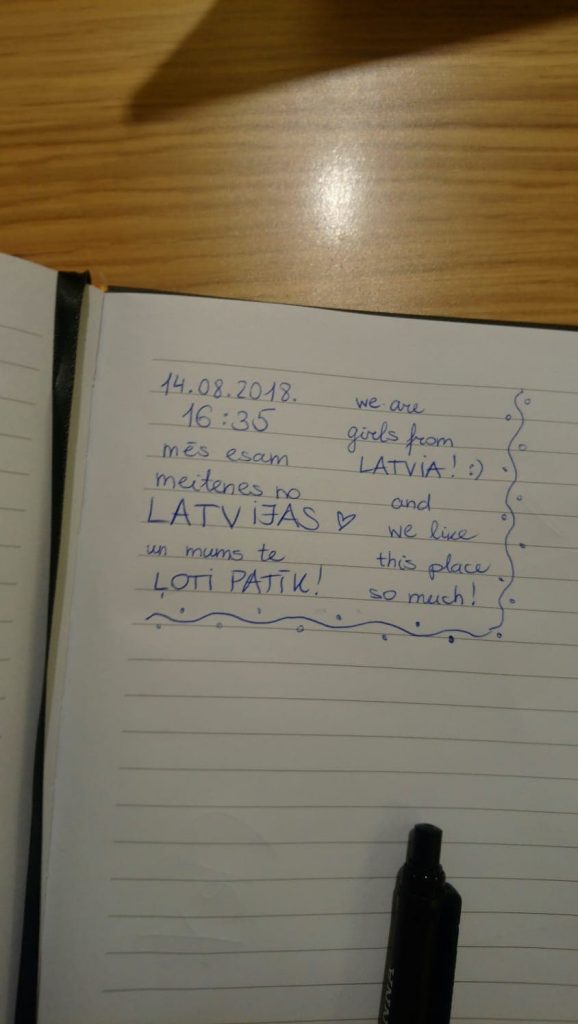 14.08.2018.
16:35
mēs esam
meitenes no
LATVIJAS ♡
un mums te
ĻOTI PATĪK!
we are
girls from
LATVIA! :)
and
we like
this place
so much!